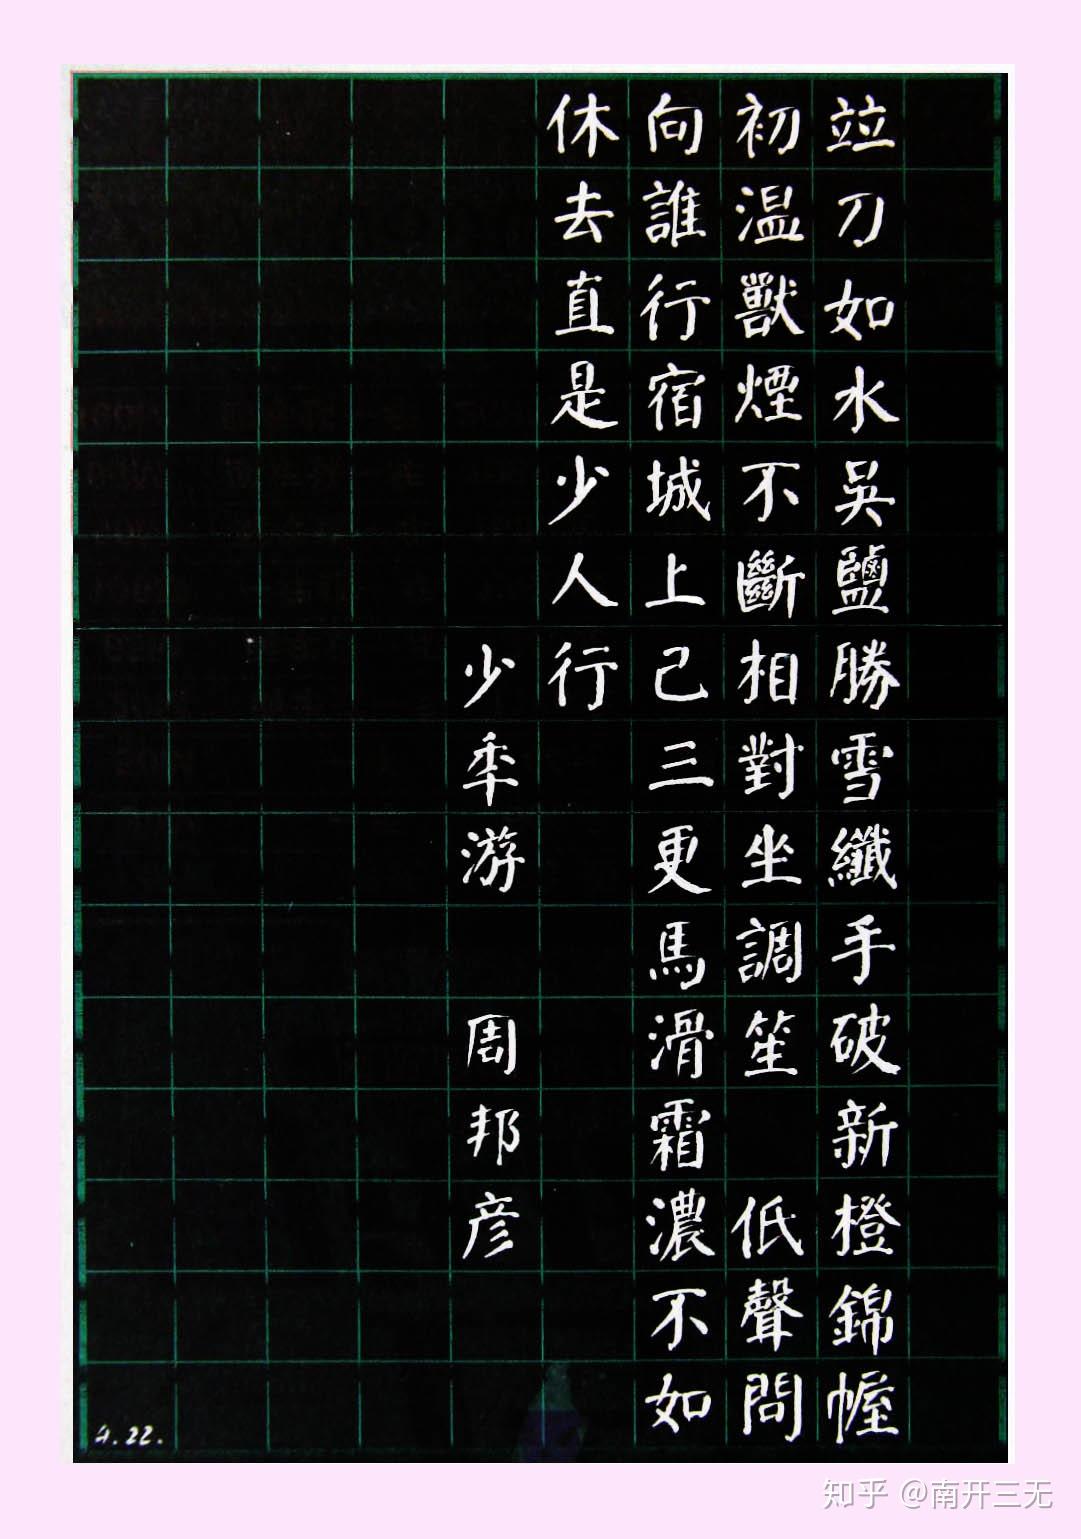 竝刀如水吳鹽勝雪纖手破新橙錦幄
初温獸煙不斷相對坐調笙 低聲問
向誰行宿城上已三更馬滑霜濃不如
休去直是少人行
少秊游 周邦彦
4.22.
知乎 @南开三无